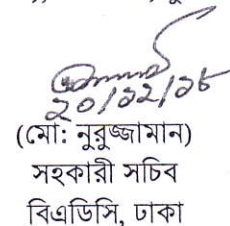 ২০/১২/১৮
(মো: নুরুজ্জামান)
সহকারী সচিব
বিএডিসি, ঢাকা